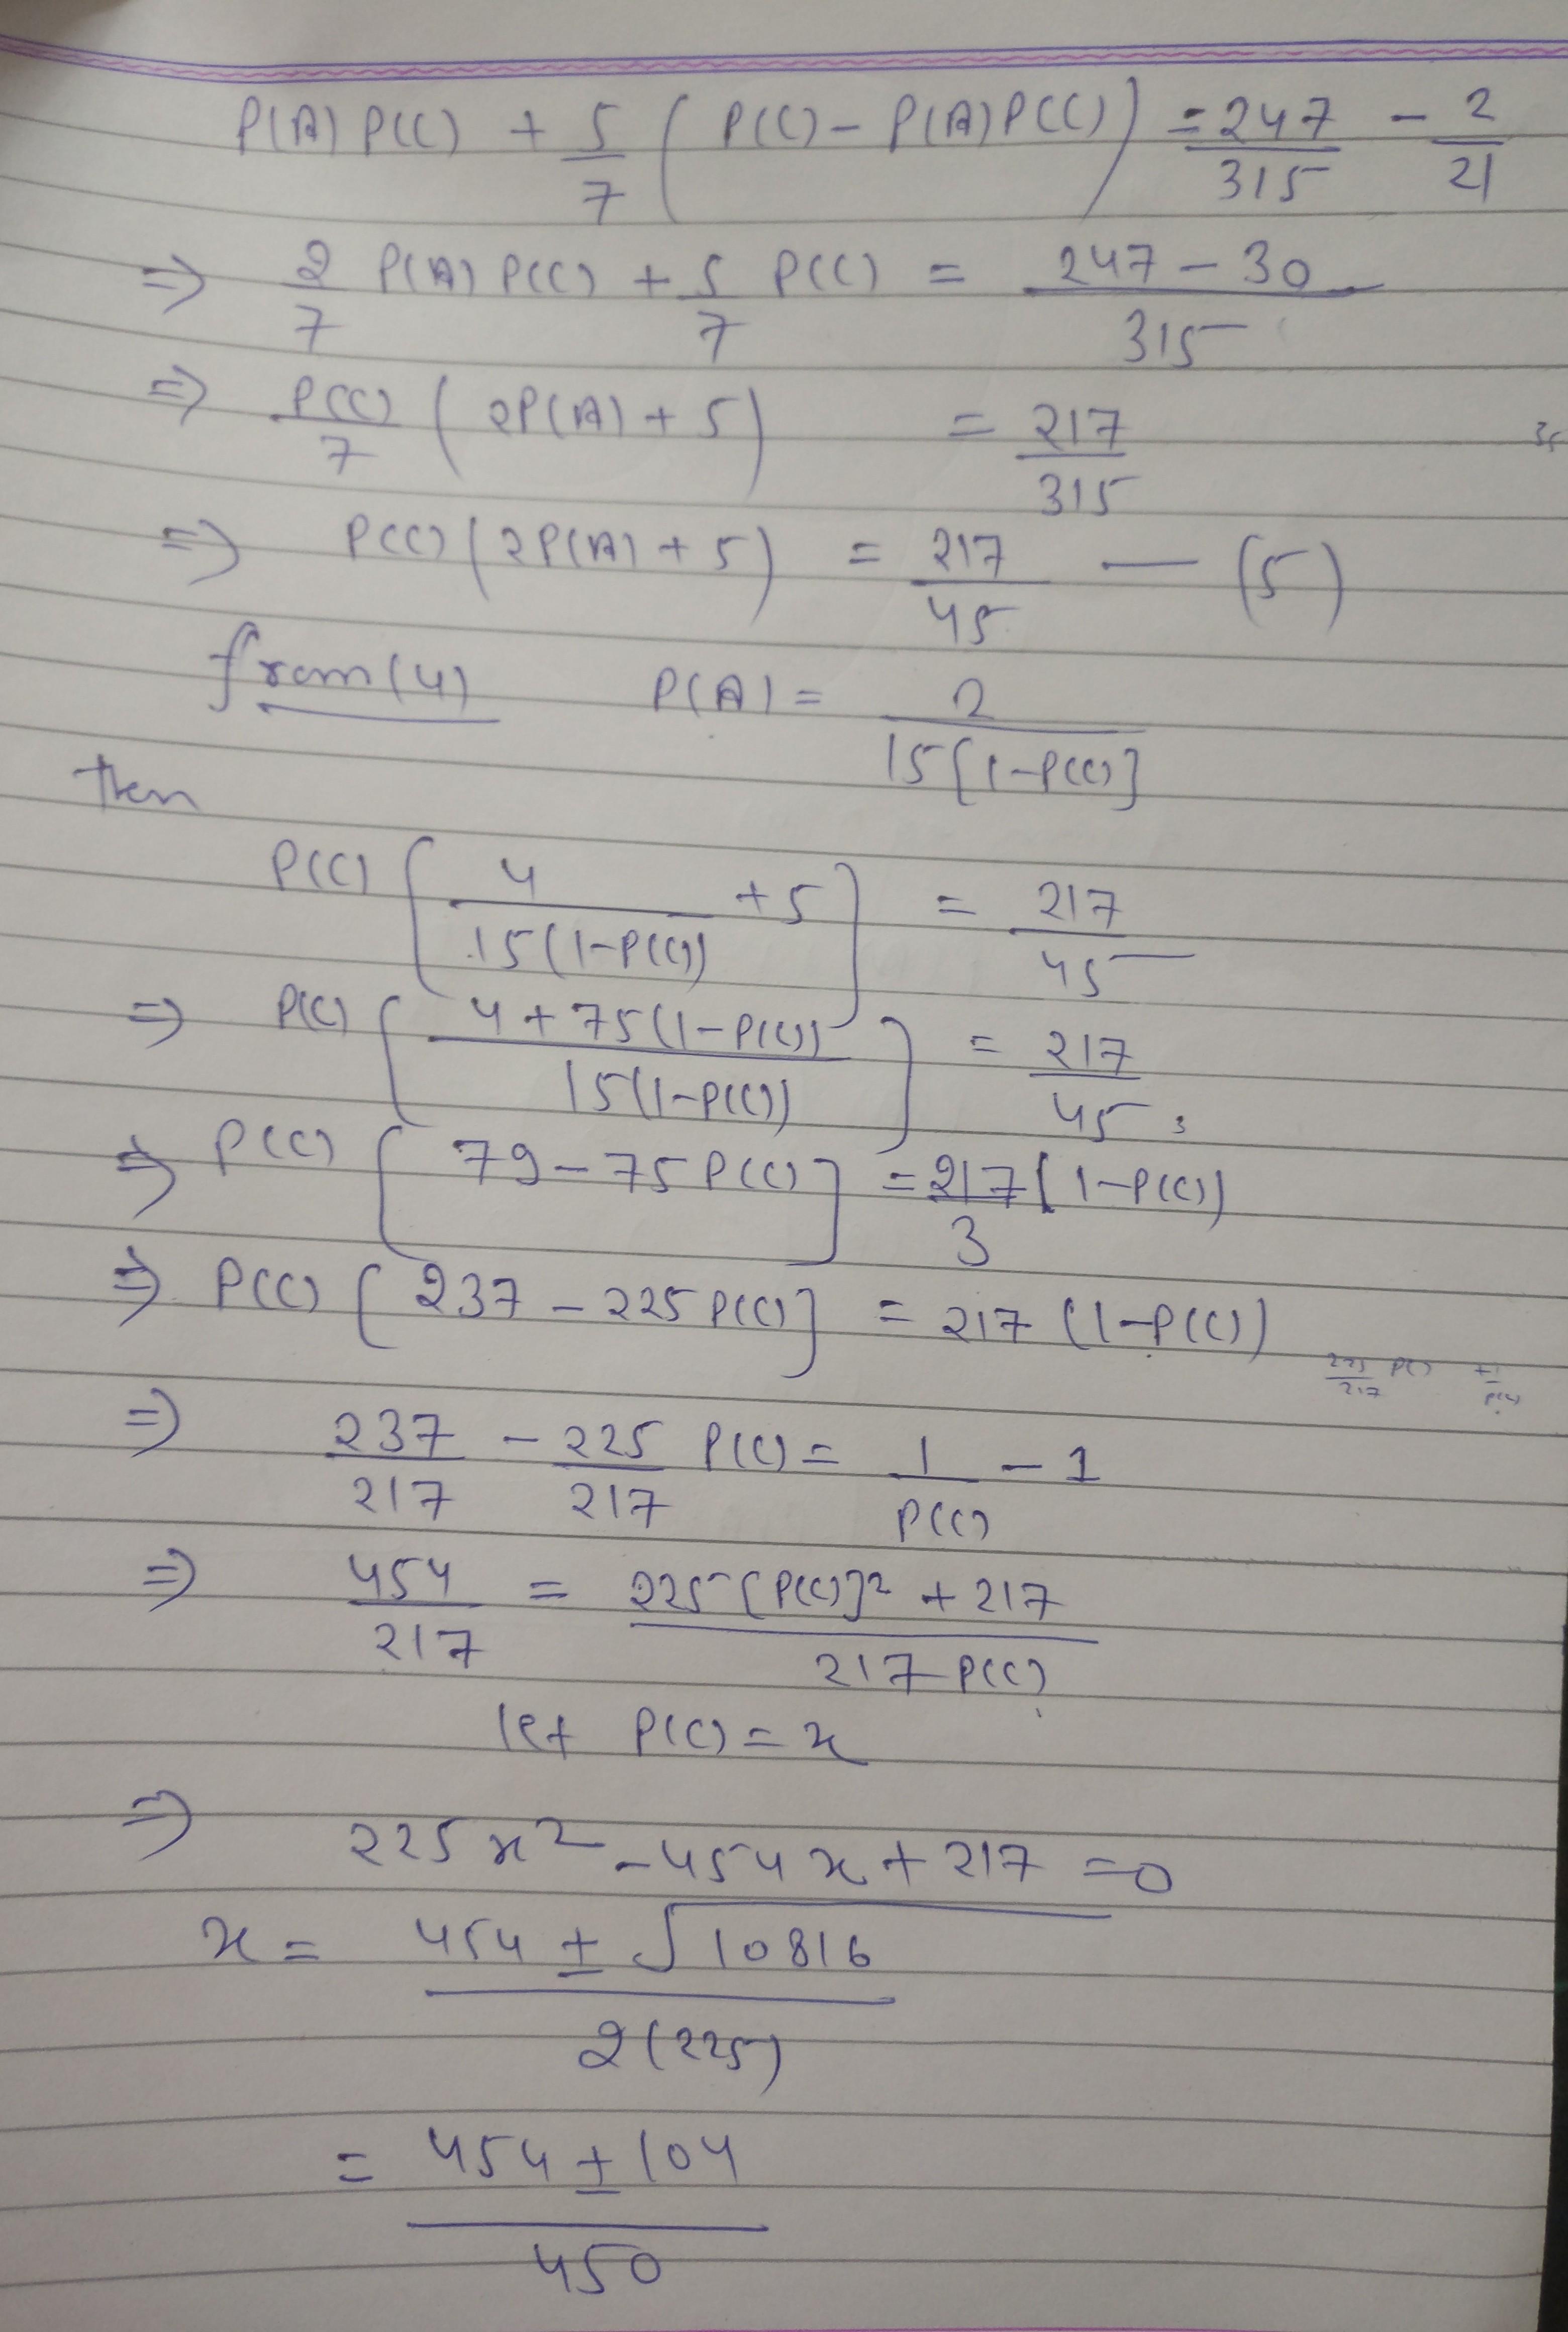 P(A) P(C) + 5/7 ( P(C) - P(A) P(C) ) = 247/315 - 2/21
⇒ 2/7 P(A) P(C) + 5/7 P(C) = (247 - 30)/315
⇒ P(C)/7 ( 2P(A) + 5 ) = 217/315
⇒ P(C) ( 2P(A) + 5 ) = 217/45 — (5)
from (4) P(A) = 2/(15[1-P(C)])
then
P(C) [ 4/(15(1-P(C))) + 5 ] = 217/45
⇒ P(C) [ (4 + 75(1-P(C)))/(15(1-P(C))) ] = 217/45 3
⇒ P(C) [ 79 - 75 P(C) ] = 217/3 (1-P(C))
⇒ P(C) [ 237 - 225 P(C) ] = 217 (1-P(C))
225/217 P(C) + 1/P(C)
⇒ 237/217 - 225/217 P(C) = 1/P(C) - 1
⇒ 454/217 = (225 [P(C)]² + 217)/(217 P(C))
let P(C) = x
⇒ 225x² - 454x + 217 = 0
x = (454 ± √10816)/(2(225))
= (454 ± 104)/450